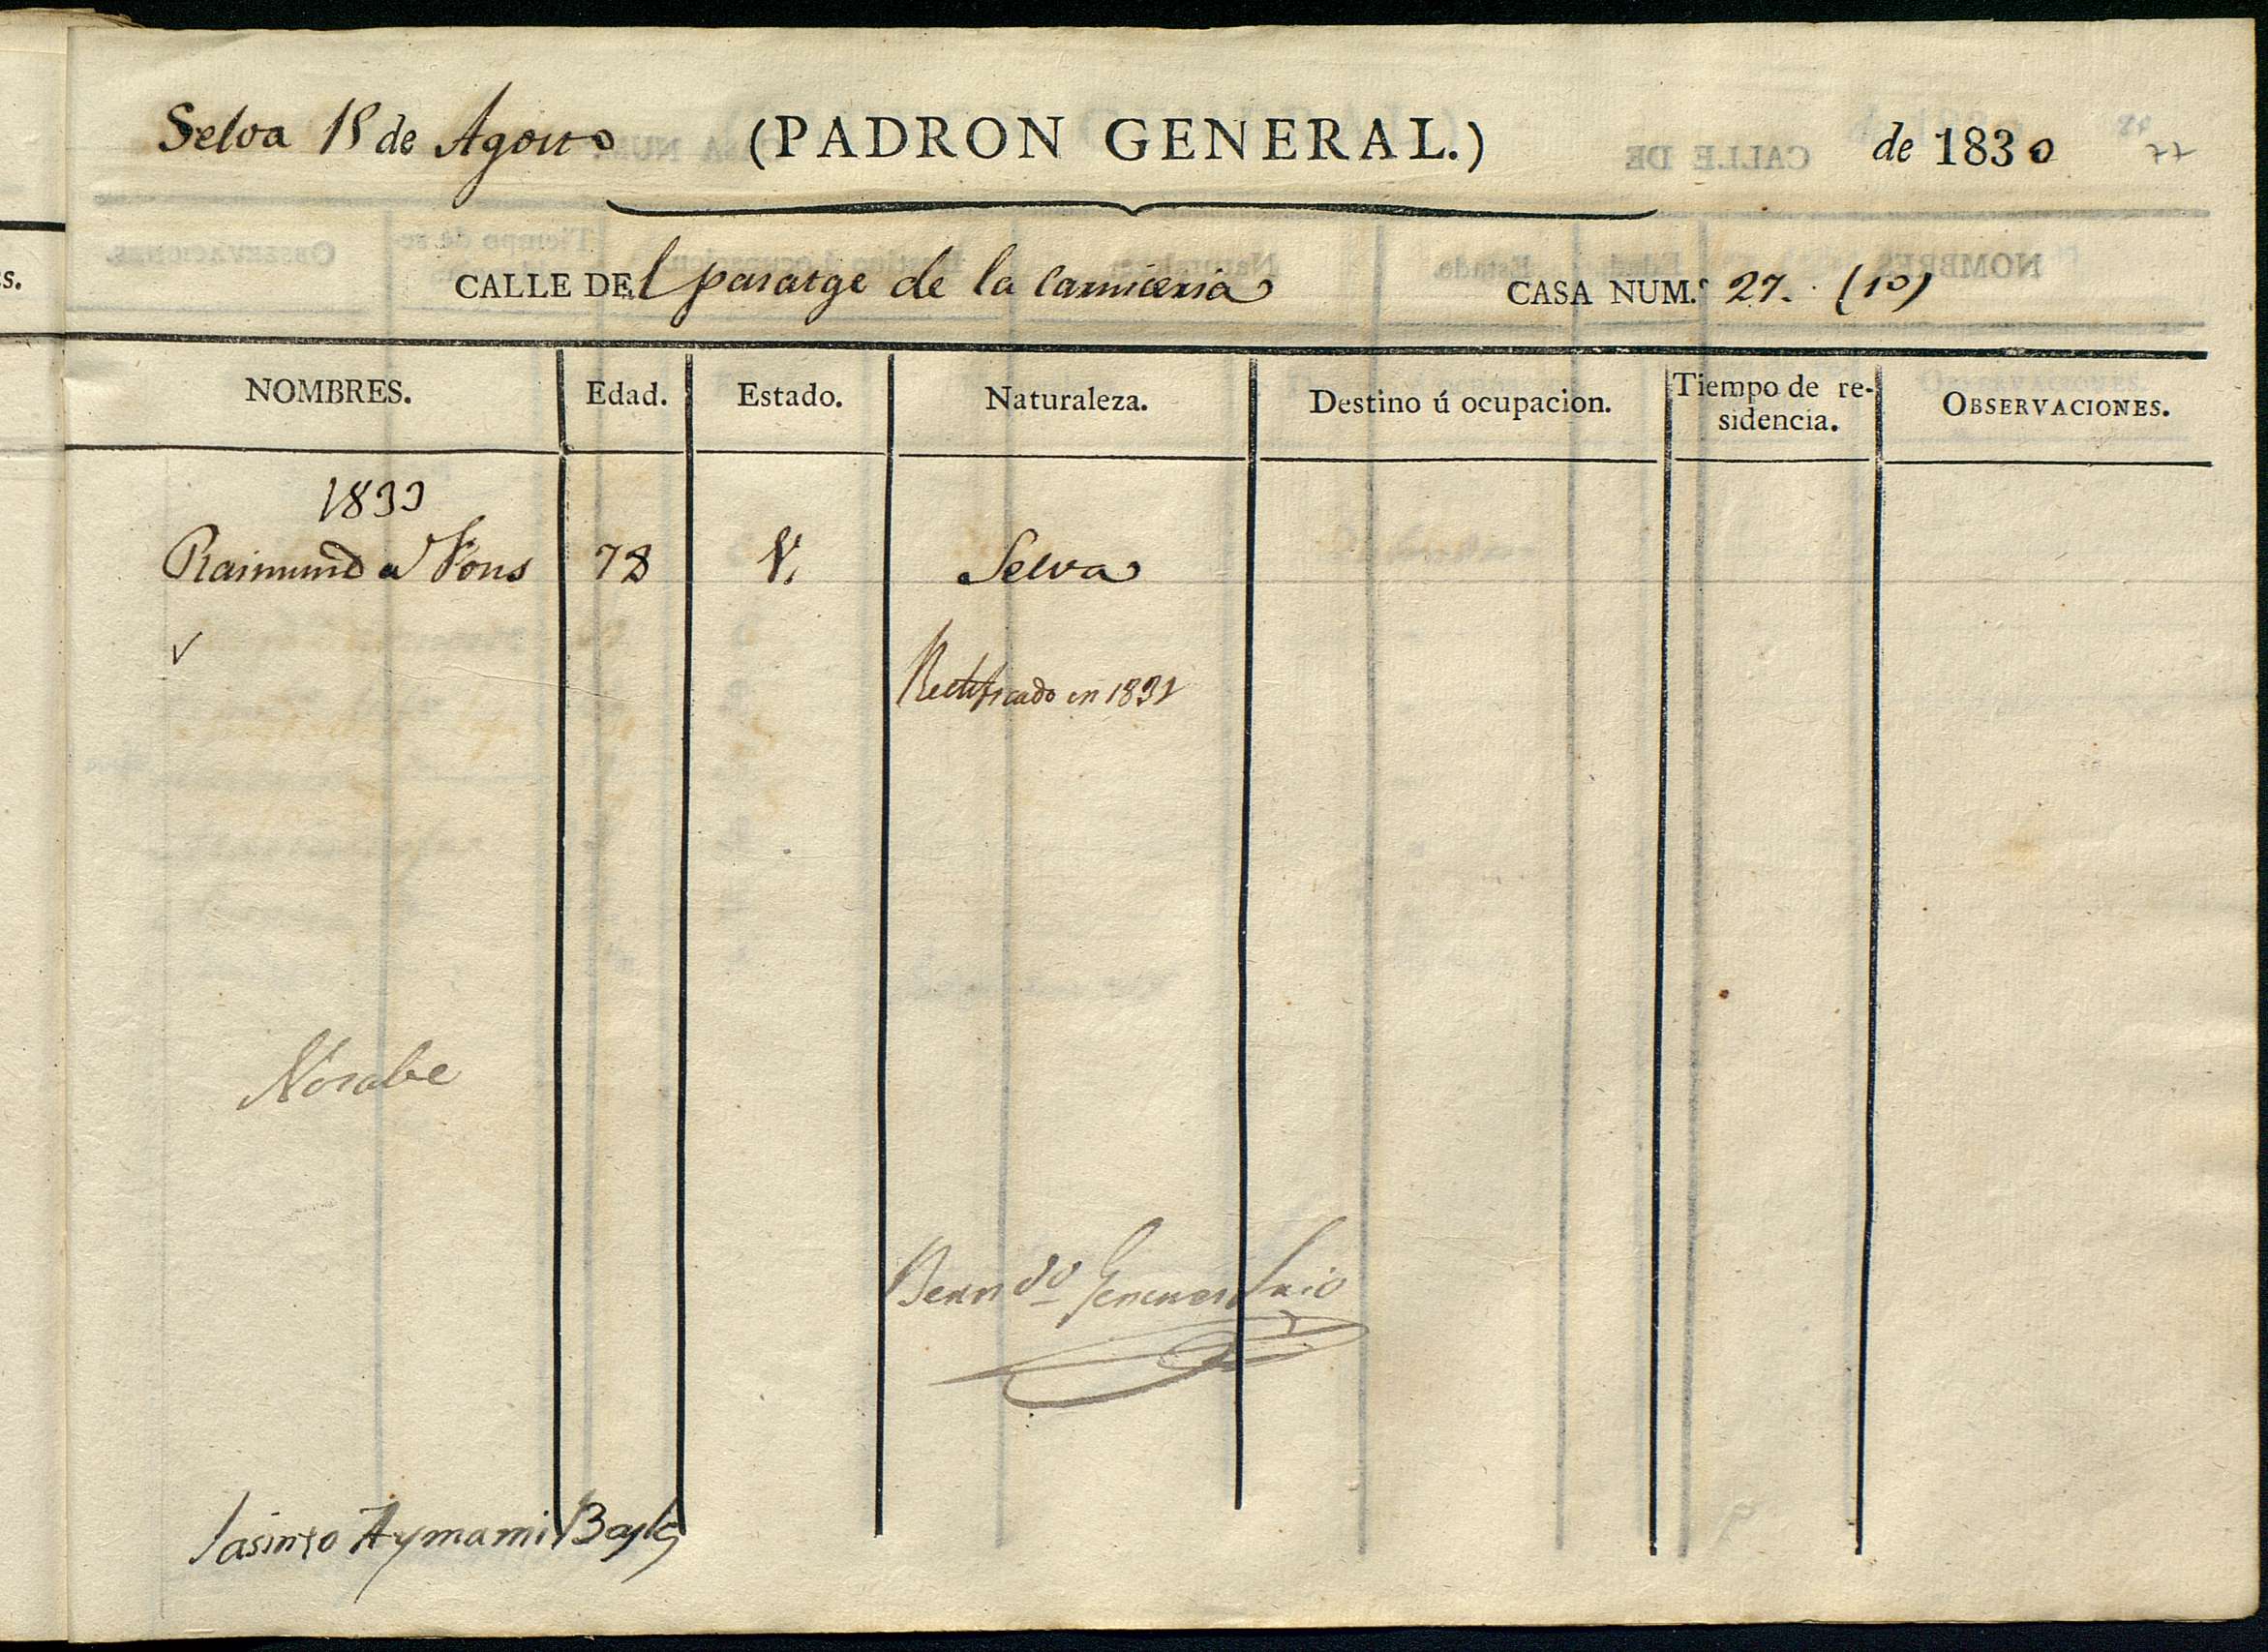 Selva 18 de Agosto (PADRON GENERAL.) de 1830 77
CALLE DEl pasatge de la carniceria CASA NUM.º 27. (10)
NOMBRES. Edad. Estado. Naturaleza. Destino ú ocupacion. Tiempo de re-
sidencia. OBSERVACIONES.
1830
Raimunda Fons 78 V. Selva
Rectificado en 1831
No sabe
Bern.do Srio
Jasinto Aymami Bayle